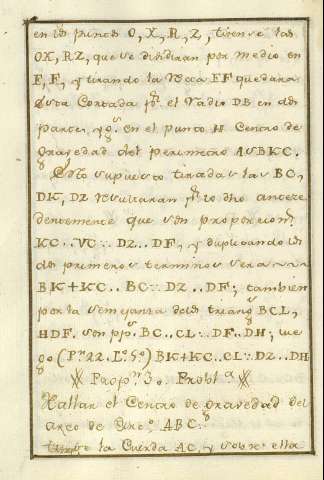 en los puntos O, X, R, Z, tirense las
OX, RZ, que se dividiran por medio en
E, F, y tirando la recta EF quedara
esta Cortada pr. el radio DB en dos
partes, ygs. en el punto H Centro de
gravedad del perimetro ASBKC.
Esto supuesto tiradas las BC,
DK, DZ resultaran pr. lo dho antece
dentemente que son proporcions.
KC..VC::DZ..DF, y duplicando los
dos primeros terminos sera
BK+KC..BC::DZ..DF; tambien
por la semejanza de los triangs. BCL,
HDF. son pps. BC..CL::DF..DH; lue
go (Pn. 22. Lo. 5o) BK+KC..CL::DZ..DH
Propn. 3a. Probla
Hallar el Centro de gravedad del
arco de Circo. ABC.
tirese la Cuerda AC, y sobre ella